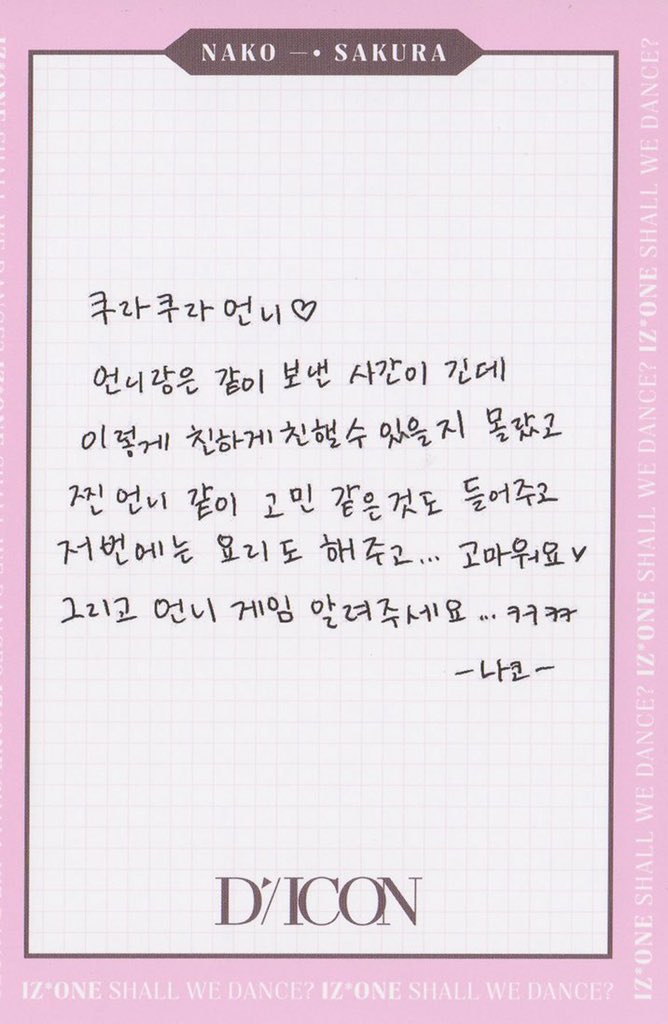 NAKO —• SAKURA
쿠라쿠라 언니♡
언니랑은 같이 보낸 시간이 긴데
이렇게 친하게 친해질수 있을지 몰랐고
찐 언니 같이 고민 같은것도 들어주고
저번에는 요리도 해주고... 고마워요♥
그리고 언니 게임 알려주세요... ㅋㅋㅋㅋ
-나코-
D'/ICON
IZ*ONE SHALL WE DANCE? IZ*ONE SHALL WE DANCE?
IZ*ONE SHALL WE DANCE? IZ*ONE SHALL WE DANCE? IZ*ONE SHALL WE DANCE?